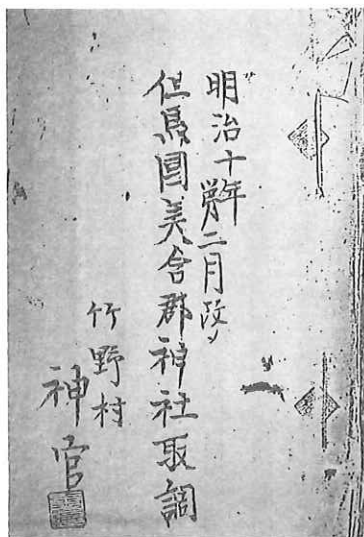 明治十年二月改
但馬國美含郡神社取調
竹野村
神官